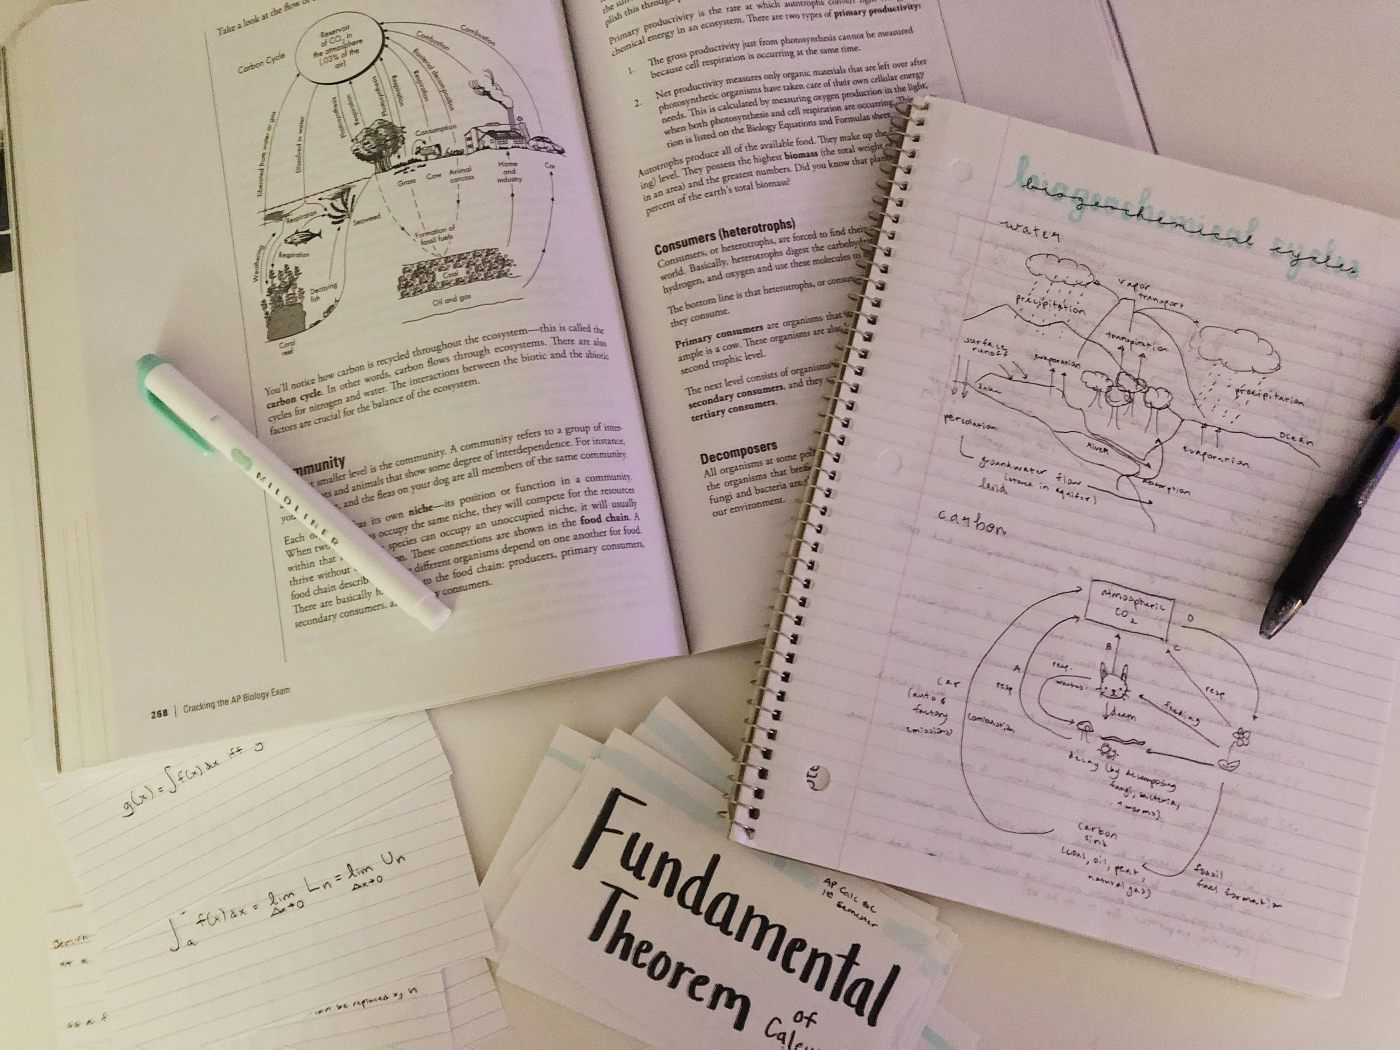 Take a look at the flow of
Carbon Cycle
Reservoir
of CO₂ in
the atmosphere
(.03% of the
air)
Combustion
Combustion
Respiration
Respiration
Liberated from water or gas
Dissolved in water
Consumption
Grass
Cow
Animal
carcass
Home
and
industry
Car
Respiration
Seaweed
Formation of
fossil fuels
Weathering
Respiration
Decaying
fish
Coal
Oil and gas
Coral
reef
You'll notice how carbon is recycled throughout the ecosystem—this is called the
carbon cycle. In other words, carbon flows through ecosystems. There are also
cycles for nitrogen and water. The interactions between the biotic and the abiotic
factors are crucial for the balance of the ecosystem.
mmunity
smaller level is the community. A community refers to a group of inter-
ts and animals that show some degree of interdependence. For instance,
you, and the fleas on your dog are all members of the same community.
Each as its own niche—its position or function in a community.
When two occupy the same niche, they will compete for the resources
within that species can occupy an unoccupied niche, it will usually
thrive without These connections are shown in the food chain. A
food chain describ different organisms depend on one another for food.
There are basically to the food chain: producers, primary consumers,
secondary consumers, consumers.
268 | Cracking the AP Biology Exam
MILDLINER
plish this through
Primary productivity is the rate at which autotrophs convert light
chemical energy in an ecosystem. There are two types of primary productivity:
1. The gross productivity just from photosynthesis cannot be measured
because cell respiration is occurring at the same time.
2. Net productivity measures only organic materials that are left over after
photosynthetic organisms have taken care of their own cellular energy
needs. This is calculated by measuring oxygen production in the light,
when both photosynthesis and cell respiration are occurring. This
tion is listed on the Biology Equations and Formulas sheet
Autotrophs produce all of the available food. They make up the
ing) level. They possess the highest biomass (the total weight
in an area) and the greatest numbers. Did you know that plan
percent of the earth's total biomass?
Consumers (heterotrophs)
Consumers, or heterotrophs, are forced to find their
world. Basically, heterotrophs digest the carbohyd
hydrogen, and oxygen and use these molecules to
The bottom line is that heterotrophs, or consu
they consume.
Primary consumers are organisms that
ample is a cow. These organisms are also
second trophic level.
The next level consists of organisms
secondary consumers, and they
tertiary consumers.
Decomposers
All organisms at some poi
the organisms that brea
fungi and bacteria are
our environment.
biogeochemical cycles
water
vapor
transport
precipitation
transpiration
surface
runoff
evaporation
precipitation
percolation
river
ocean
evaporation
groundwater flow
(stored in aquifers)
absorption
carbon
atmospheric
CO₂
A
B
C
D
resp.
resp.
resp
feeding
death
car
(auto &
factory
emissions)
combustion
decay (by decomposing
fungi, bacteria,
& worms)
carbon
sink
(coal, oil, peat,
natural gas)
fossil
fuel formation
g(x) = ∫f(x)dx iff g
∫ₐ f(x)dx = lim Lₙ = lim Uₙ
Δx→0 Δx→0
can be replaced by n
AP Calc BC
1st Semester
Fundamental
Theorem
of
Calcu